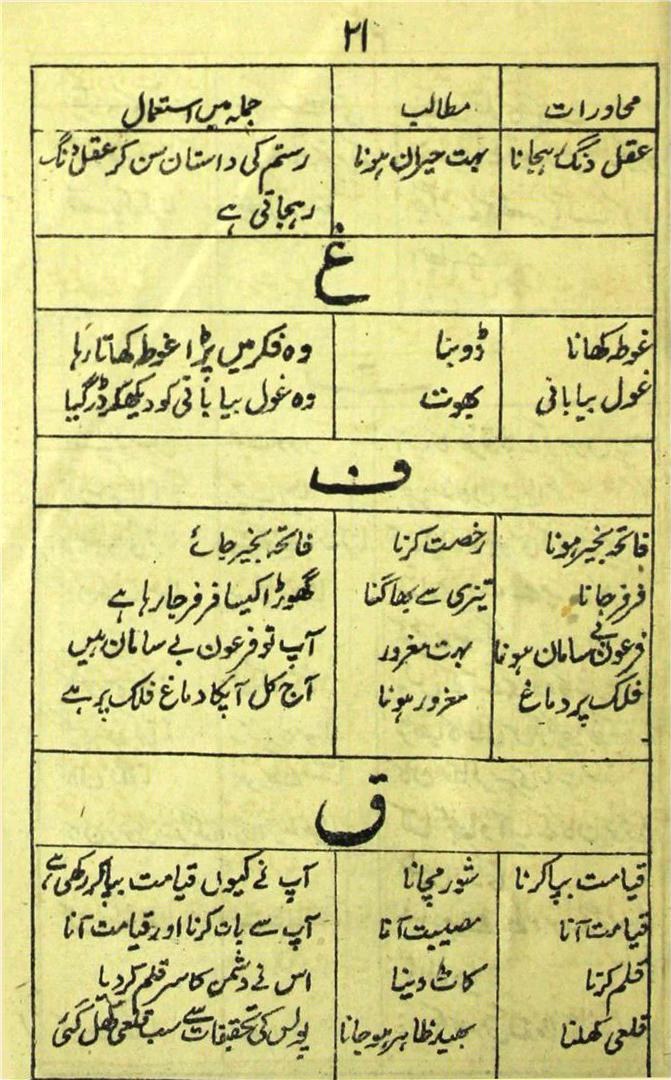 ۲۱
محاورات مطالب جملہ میں استعمال
عقل دنگ رہجانا بہت حیران ہونا رستم کی داستان سن کر عقل دنگ
رہجاتی ہے
غ
غوطہ کھانا ڈوبنا وہ فکر میں پڑا غوطہ کھاتا رہا
غول بیابانی بھوت وہ غول بیابانی کو دیکھکر ڈر گیا
ف
فاتحہ بخیر ہونا رخصت کرنا فاتحہ بخیر جائے
فرفر جانا تیزی سے بھاگنا گھوڑا کیسا فرفر جا رہا ہے
فرعون بے سامان ہونا بہت مغرور آپ تو فرعون بے سامان ہیں
فلک پر دماغ مغرور ہونا آج کل آپکا دماغ فلک پر ہے
ق
قیامت بپا کرنا شور مچانا آپ نے کیوں قیامت بپا کر رکھی ہے
قیامت آنا مصیبت آنا آپ سے بات کرنا اور قیامت آنا
قلم کرنا کاٹ دینا اس نے دشمن کا سر قلم کر دیا
قلعی کھلنا بھید ظاہر ہو جانا پولس کی تحقیقات سے سب قلعی کھل گئی